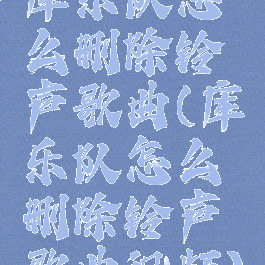 库乐队怎
么删除铃
声歌曲(库
乐队怎么
删除铃声
歌曲视频)